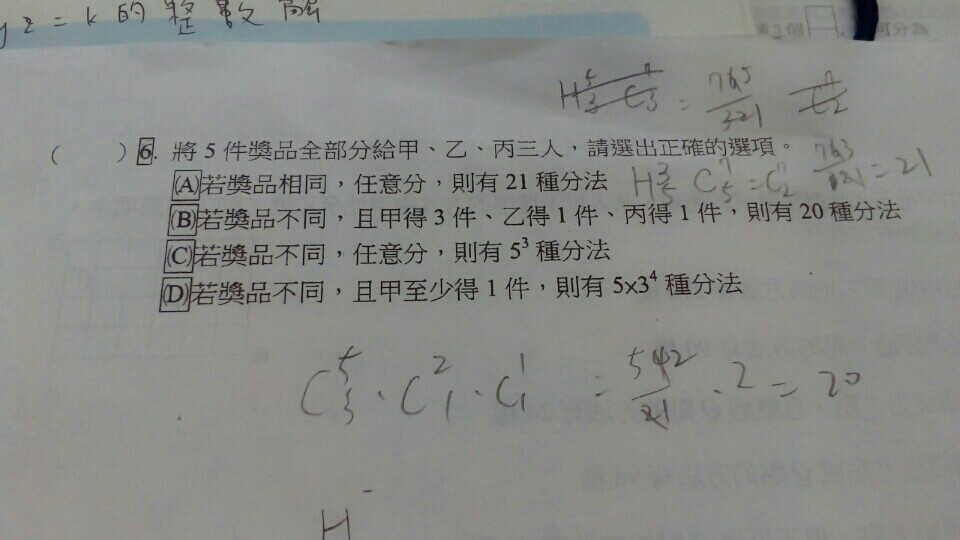 yz=k的整數解
H⁵₃ C⁷₃ = 765/321
( ) 6. 將 5 件獎品全部分給甲、乙、丙三人，請選出正確的選項。
(A)若獎品相同，任意分，則有 21 種分法 C⁷₅=C⁷₂ =21
(B)若獎品不同，且甲得 3 件、乙得 1 件、丙得 1 件，則有 20 種分法
(C)若獎品不同，任意分，則有 5³ 種分法
(D)若獎品不同，且甲至少得 1 件，則有 5×3⁴ 種分法
C⁵₃·C²₁·C¹₁ = 542/21 ·2=20
H